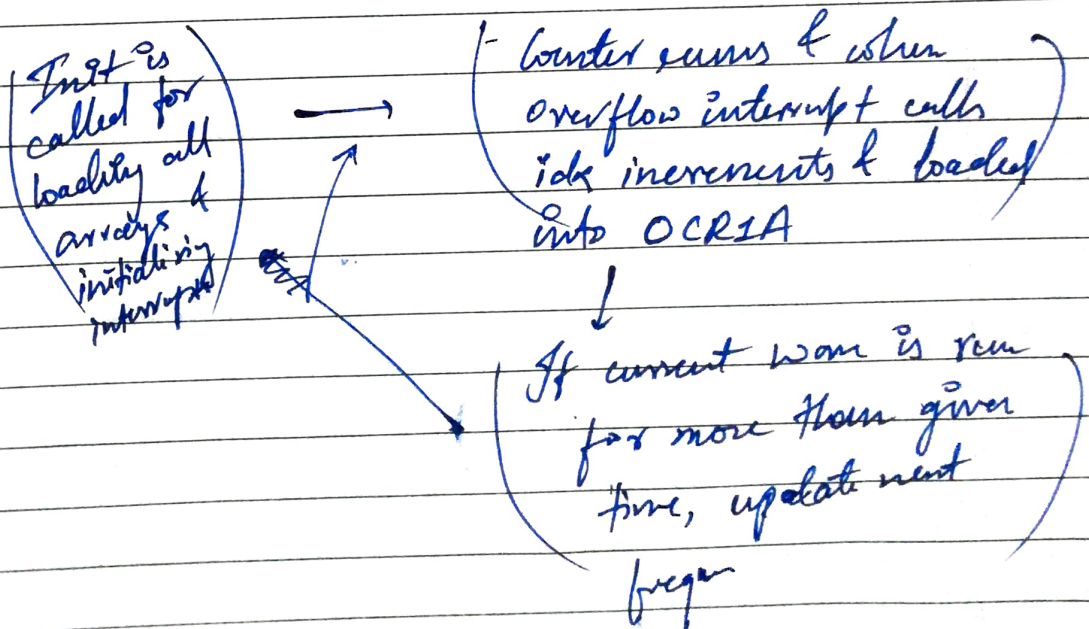 Init is
called for
loading all
arrays &
initialising
interrupts
- Counter runs & when
overflow interrupt calls
idx increments & loaded
into OCR1A
If current wave is run
for more than given
time, update next
frequ